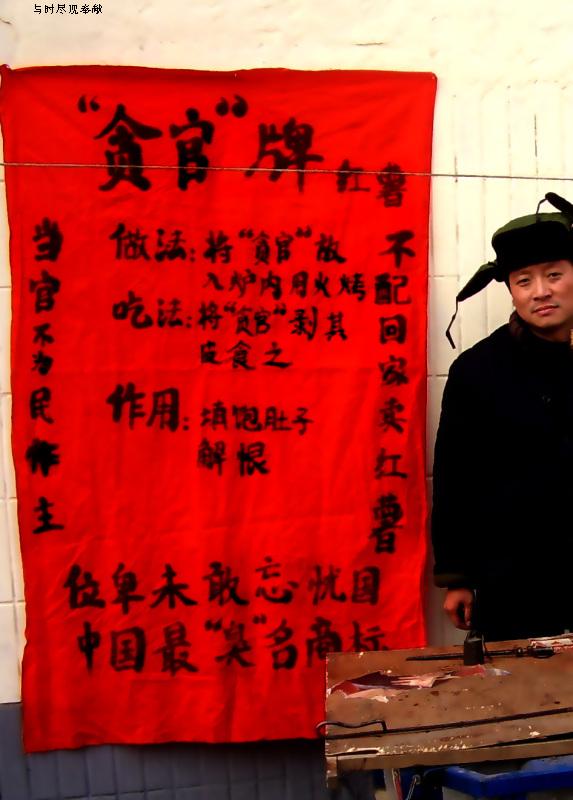 与时尽现奉献
“贪官”牌
红薯
当官不为民作主
做法：将“贪官”放
入炉内用火烤
吃法：将“贪官”剥其
皮食之
作用：填饱肚子
解恨
不配回家卖红薯
位卑未敢忘忧国
中国最“臭”名商标